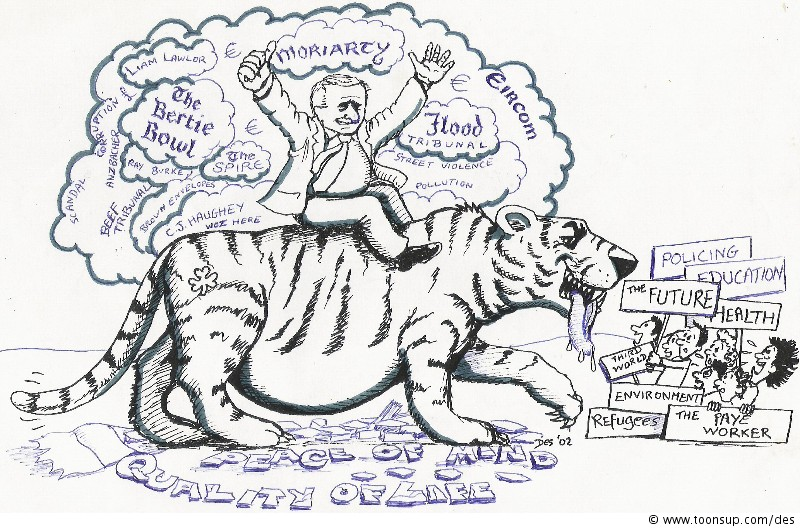 LIAM LAWLOR
€
MORIARTY
€
EIRCOM
CORRUPTION
£
The
Bertie
Bowl
€
Flood
TRIBUNAL
SCANDAL
ANZBACHER
RAY BURKE
The
SPIRE
STREET VIOLENCE
POLLUTION
BEEF
TRIBUNAL
BROWN ENVELOPES
C.J. HAUGHEY
WOZ HERE
POLICING
EDUCATION
THE FUTURE
HEALTH
THIRD
WORLD
ENVIRONMENT
Refugees
THE PAYE
WORKER
DES '02
PEACE OF MIND
QUALITY OF LIFE
© www.toonsup.com/des